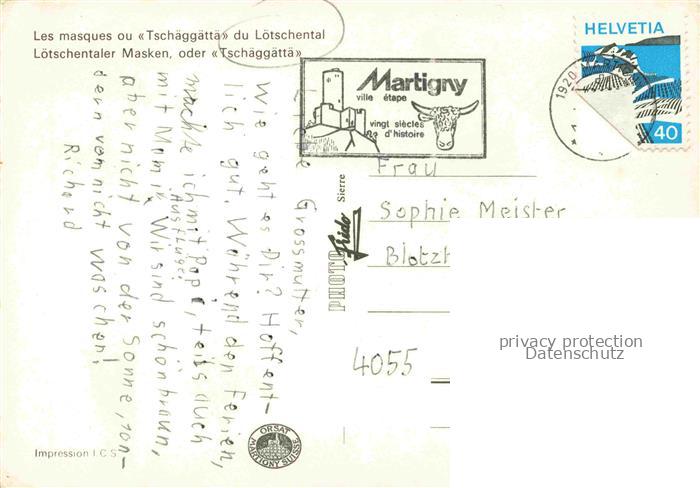 Les masques ou «Tschäggättä» du Lötschental
Lötschentaler Masken, oder «Tschäggättä»
HELVETIA
40
1920
Martigny
ville étape
vingt siècles
d'histoire
Liebe Grossmutter,
Wie geht es Dir? Hoffent-
lich gut. Während den Ferien,
machte ich mit Papi, teils auch
mit Mami Ausflüge.
Wir sind schön braun,
aber nicht von der Sonne, son-
dern vom nicht waschen!
Richard
Frau
Sophie Meister
Blotzh
4055
PHOTO Frido Sierre
ORSAT
MARTIGNY SUISSE
Impression I C S
privacy protection
Datenschutz